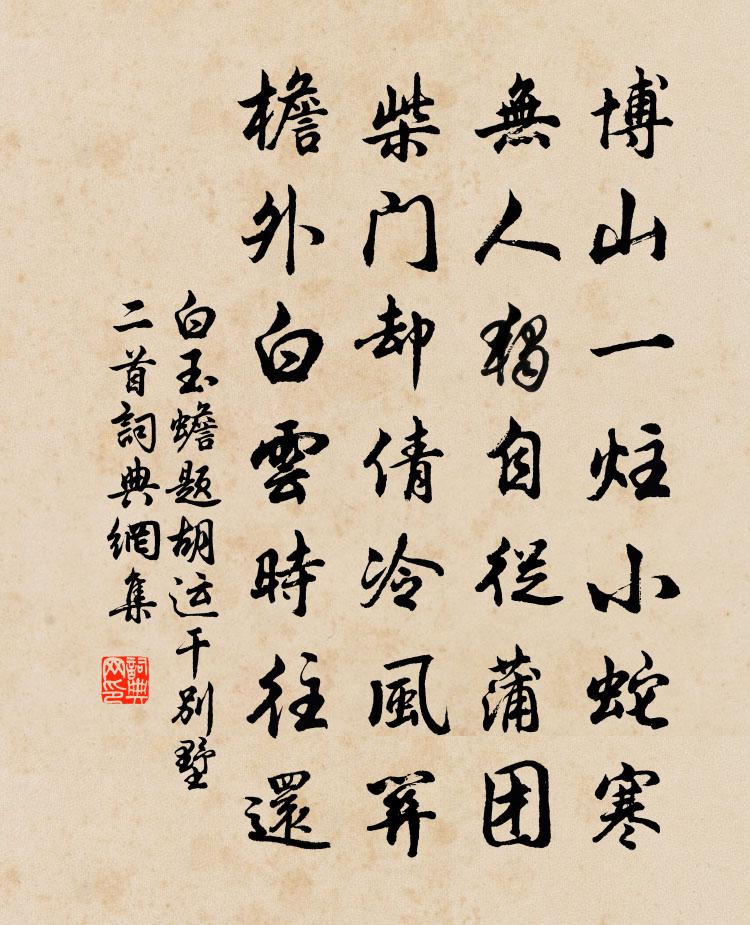 博山一炷小蛇寒
無人獨自從蒲团
柴门却倩冷風關
檐外白雲時往還
白玉蟾题胡运干别墅
二首詞典網集
詞典网印